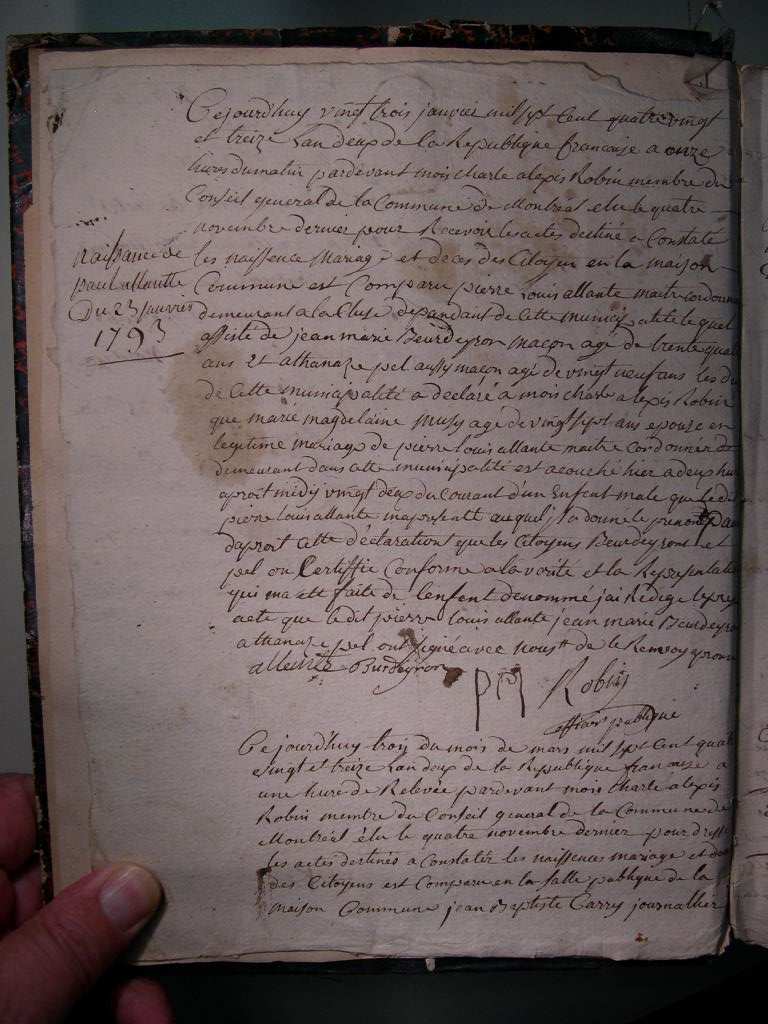 Cejourd'huy vingt trois janvier mil sept Cent quatre vingt
et treize Lan deux de la Republique francaise a onze
hures du matin pardevant mois charle alexis Robin membre du
Conseil general de la Commune de Montréal elu le quatre
novembre dernier pour Recevoir les actes destiné a Constate
les naissence Mariage et deces des Citoyen en la maison
Commune est Comparu pierre louis allante maitre Cordonn
demeurant a la Cluse dependant de Cette municipalité le quel
assisté de jean marie Beurdeyron maçon agé de trente quat
ans Et athanaze pel aussy maçon agé de vingt neuf ans les du
de Cette municipalité a declaré a mois charle alexis Robin
que marie magdelaine Musy agé de vingt sept ans epouze en
legitime mariage de pierre louis allante maitre Cordonnér
demeurant dans cette municipalité est acouché hier a deux hu
aproit midy vingt deux du Courant d'un Enfent male que le di
pierre louis allante ma presenté auquel jl a donné le prenom pau
daproit Cette déclarationt que les Citoyens Beurdeyront et
pel on Certiffié Conforme a la vérité et la Representati
qui ma etté faite de lenfent dénommé jai Redigé le pres
acte que le dit pierre louis allante jean marie Beurdeyro
athanaze pel ont signé avec nous
allente Burdeyron
p Robin
officier publique
naissance de
paul allantte
Du 23 janvier
1793
Cejourd'huy trois du mois de mars mil sept Cent quat
vingt et treize Lan deux de la Republique francaise a
une hure de Relevée pardevant mois charle alexis
Robin membre du Conseil general de la Commune de
Montréal élu le quatre novembre dernier pour dress
les actes destinés a Constatér les naissences mariage et de
des Citoyens est Comparu en la salle publique de la
maison Commune jean Baptiste Carry journallier